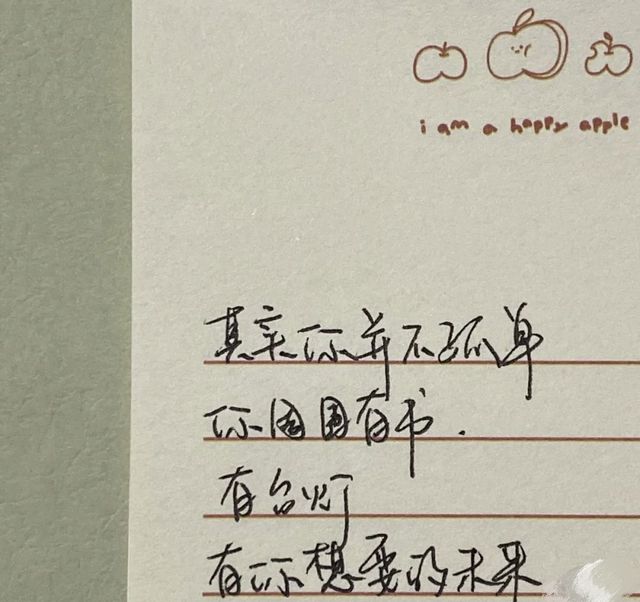 i am a happy apple
其实你并不孤单
你周围有书.
有台灯
有你想要的未来